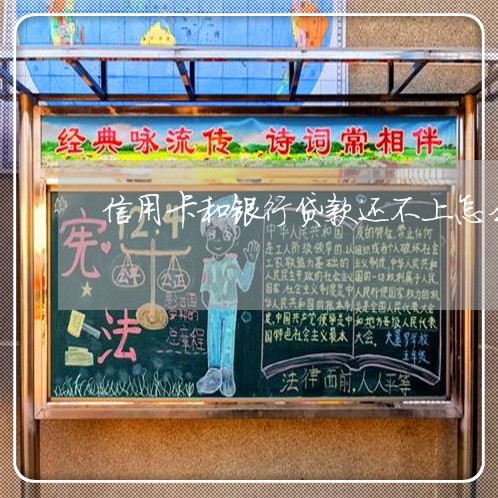 经典咏流传 诗词常相伴
信用卡和银行贷款还不上怎
宪
法
12·4
公平
公正
总章程
中华人民共和国
是工人阶级领导的,以
工农联盟为基础的
人民民主专政的社会主义
国家。社会主义制度是中
华人民共和国的根本制
度。中国共产党领导是中
国特色社会主义最本
质的特征。禁止任何
组织或者个人破坏社会
主义制度。中华人民共和
国的一切权利属于人民。
人民行使国家权力的机
关是全国人民代表大会
和地方各级人民代表
大会。
五年级
法律面前,人人平等